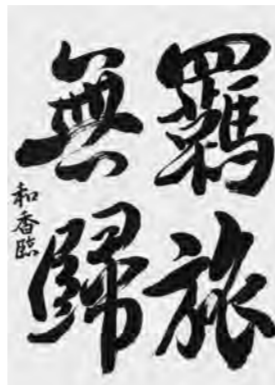 羇旅
無歸
和香臨